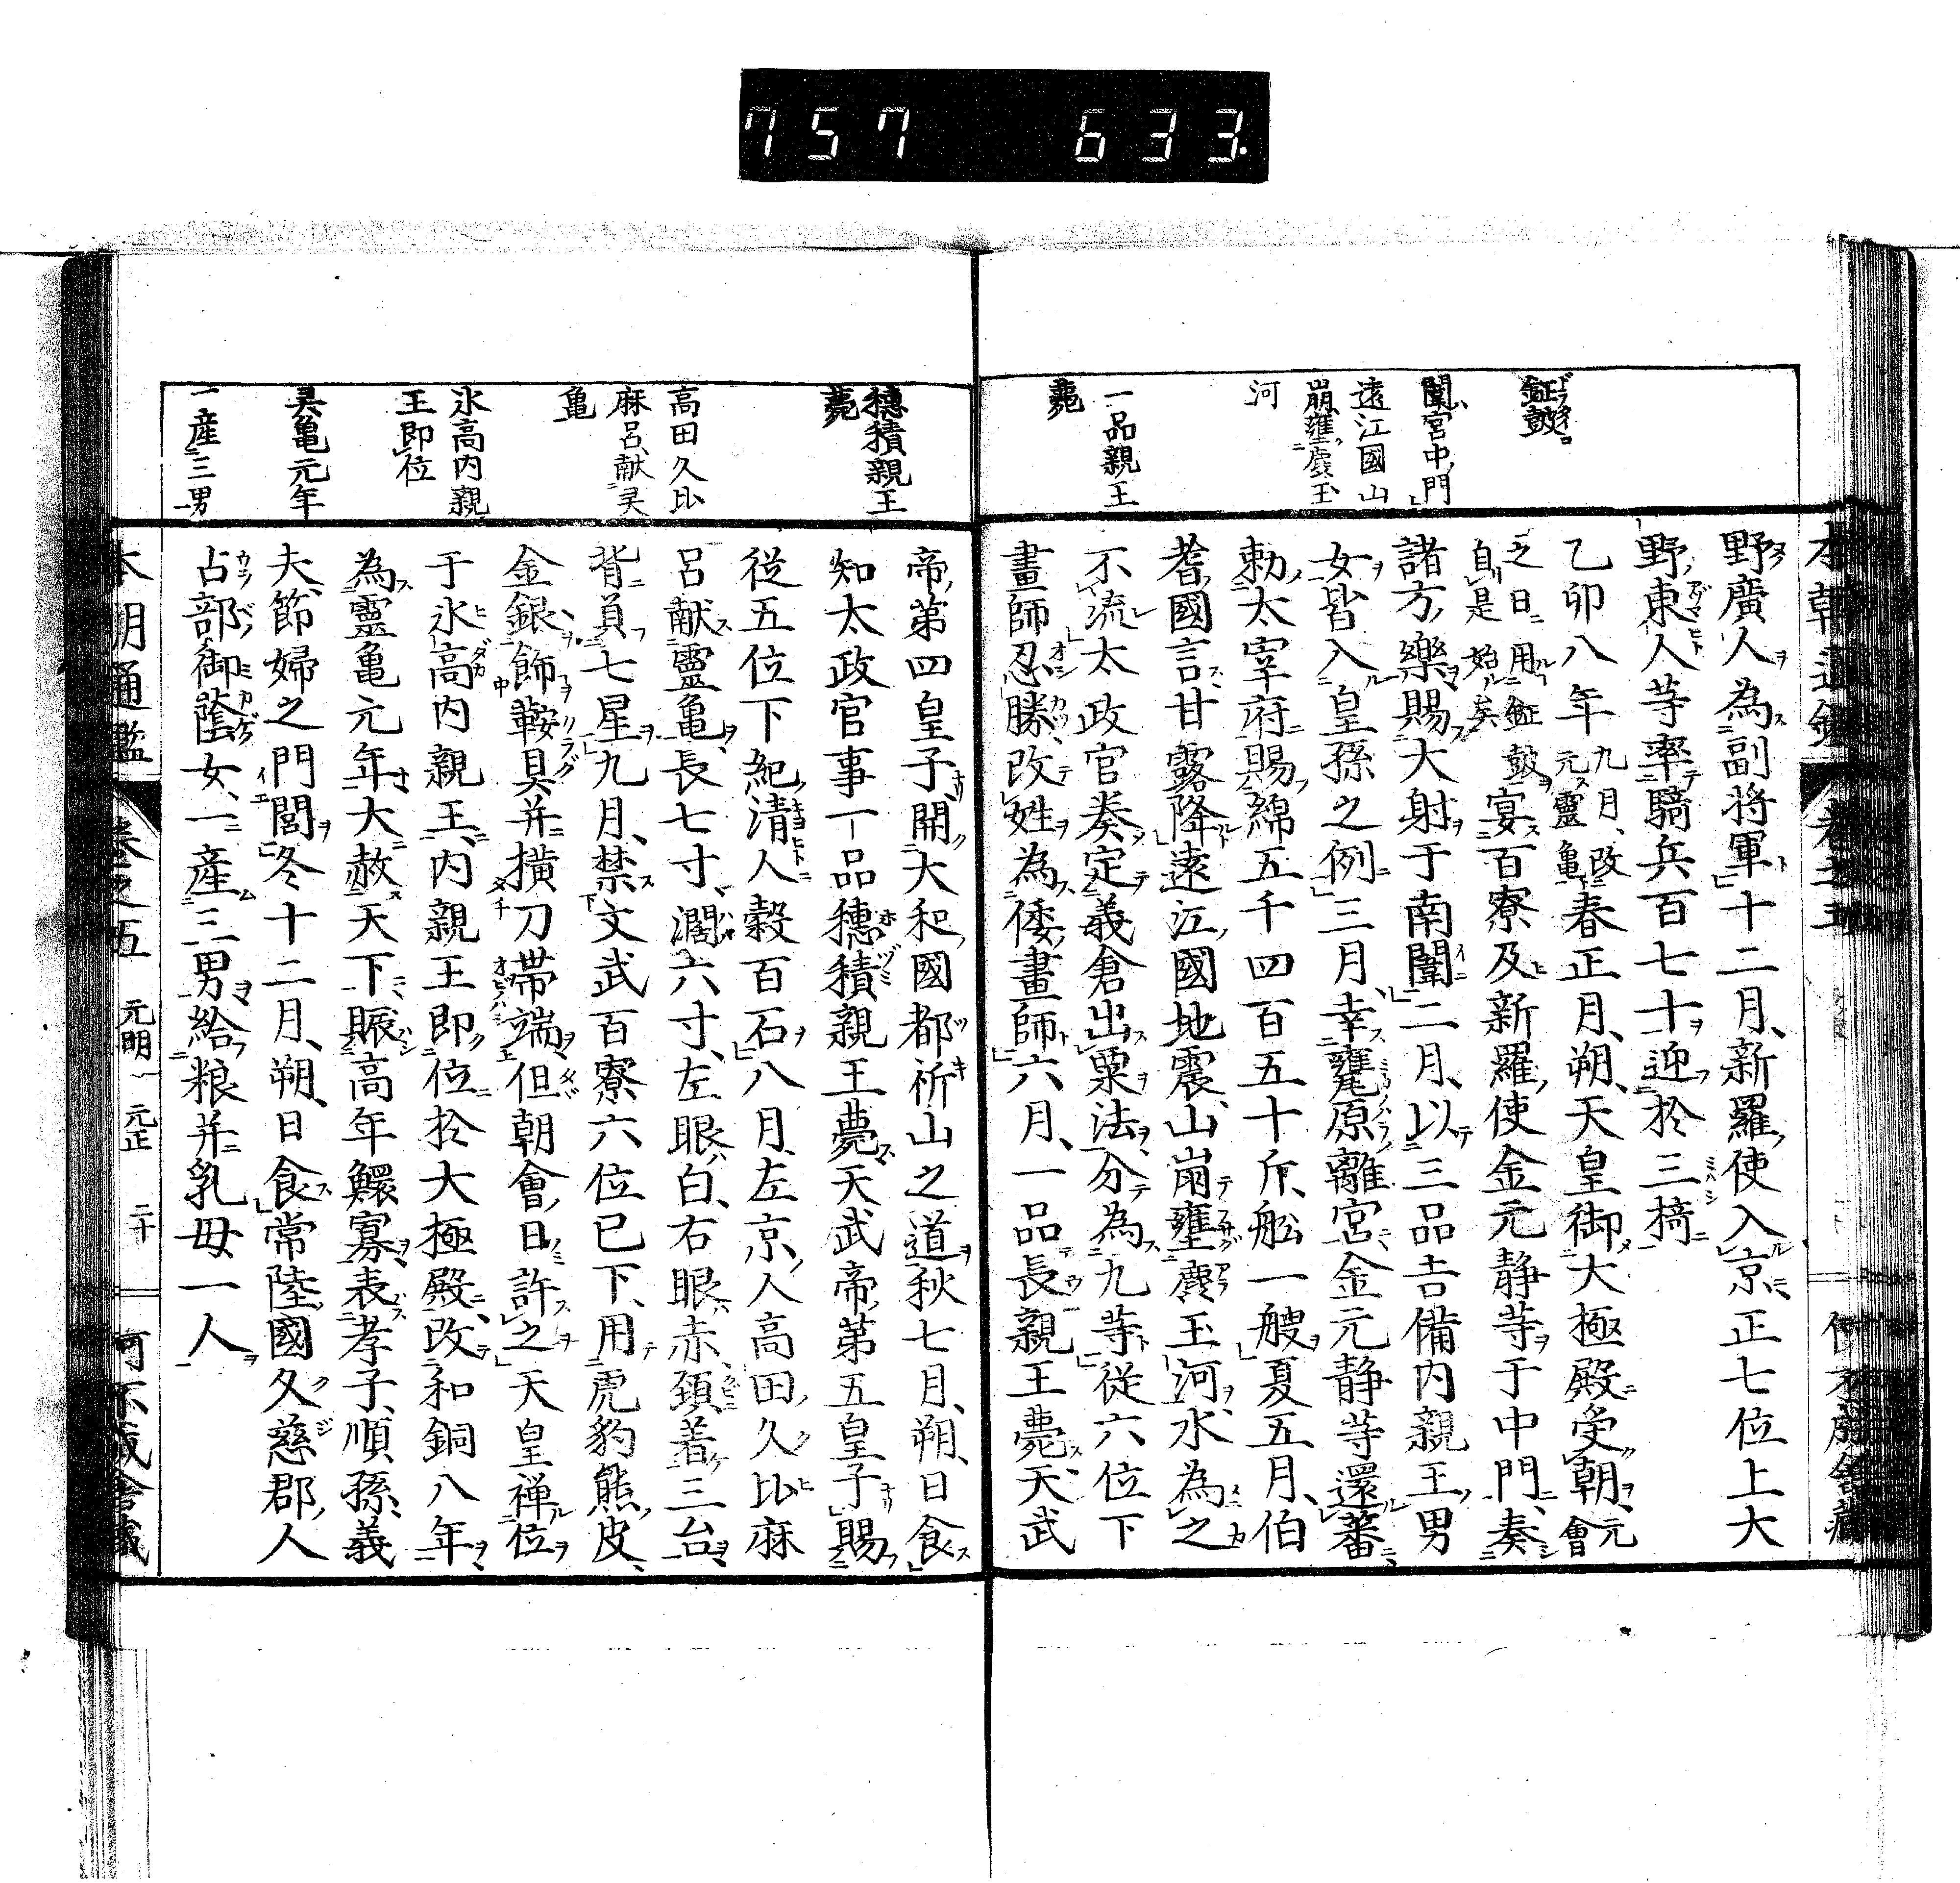 757 633
鉦鼓
闈宮中門
遠江國山
崩壅麁玉
河
一品親王
薨
野廣人為副將軍十二月、新羅使入京正七位上大
野東人等率騎兵百七十迎於三椅
乙卯八年九月、改元靈亀春正月、朔、天皇御大極殿受朝、元會
之日用鉦鼓自是始矣宴百寮及新羅使金元静等于中門、奏
諸方樂賜大射于南闈二月、以三品吉備内親王男
女皆入皇孫之例三月、幸甕原離宮金元静等還蕃
勅太宰府賜綿五千四百五十斤、舩一艘夏五月、伯
耆國言甘露降遠江國地震山崩壅麁玉河水為之
不流太政官奏定義倉出粟法、分為九等從六位下
畫師忍勝、改姓為倭畫師六月、一品長親王薨、天武
穗積親王
薨
高田久比
麻呂献霊
亀
氷高内親
王即位
霊亀元年
一産三男
帝第四皇子、開大和國都祈山之道秋七月、朔、日食
知太政官事一品穗積親王薨天武帝第五皇子賜
從五位下紀清人穀百石八月、左京人高田久比麻
呂献靈亀、長七寸、濶六寸、左眼白、右眼赤頚着三台
背負七星九月、禁文武百寮六位已下、用虎豹熊皮、
金銀飾鞍具并横刀帯端但朝會日許之天皇禅位
于氷高内親王、内親王即位於大極殿、改和銅八年
為靈亀元年大赦天下賑高年鰥寡表孝子、順孫、義
夫、節婦之門閭冬十二月、朔、日食常陸國久慈郡人
占部御蔭女、一産三男給粮并乳母一人
本朝通鑑 卷之五 元明 元正 二十